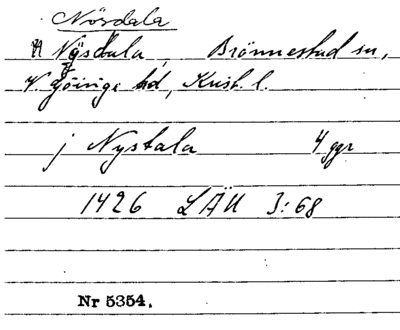 Nösdala
Nösdala, Brönnestad sn,
V. Göinge hd, Krist. l.
j Nystala 4 ggr
1426 LÄU 3:68
Nr 5354.